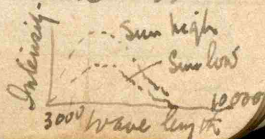 Intensity.
Sun high
Sun low
3000 wave length 10,000